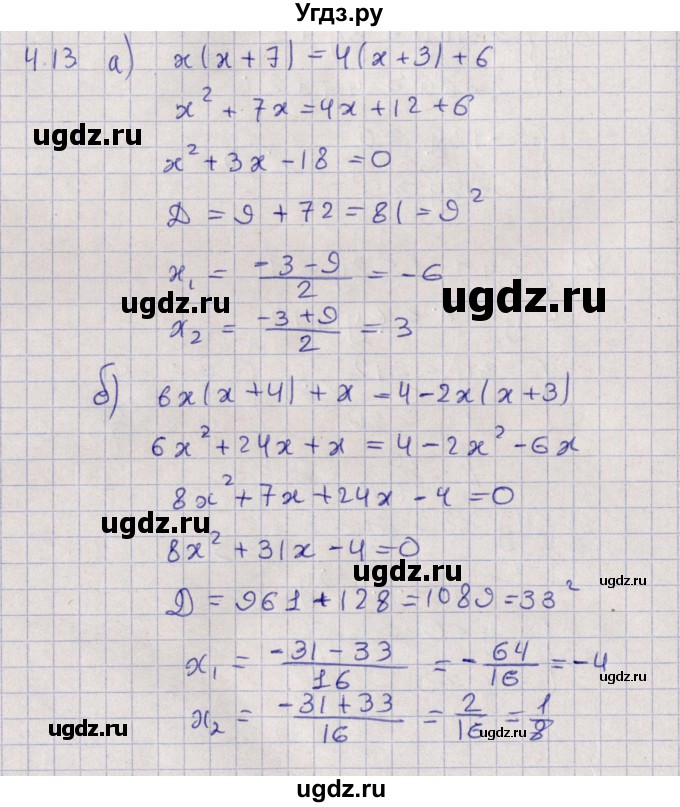 Угдз.ру
4.13 а) x(x+7) = 4(x+3)+6
x² + 7x = 4x + 12 + 6
ugdz.ru
x² + 3x - 18 = 0
Д = 9 + 72 = 81 = 9²
x₁ = (-3-9)/2 = -6
ugdz.ru ugdz.ru
x₂ = (-3+9)/2 = 3
б) 6x(x+4) + x = 4 - 2x(x+3)
6x² + 24x + x = 4 - 2x² - 6x
8x² + 7x + 24x - 4 = 0
ugdz.ru
8x² + 31x - 4 = 0
ugdz.ru ugdz.ru
Д = 961 + 128 = 1089 = 33²
x₁ = (-31-33)/16 = -64/16 = -4
x₂ = (-31+33)/16 = 2/16 = 1/8
ugdz.ru ugdz.ru
ugdz.ru